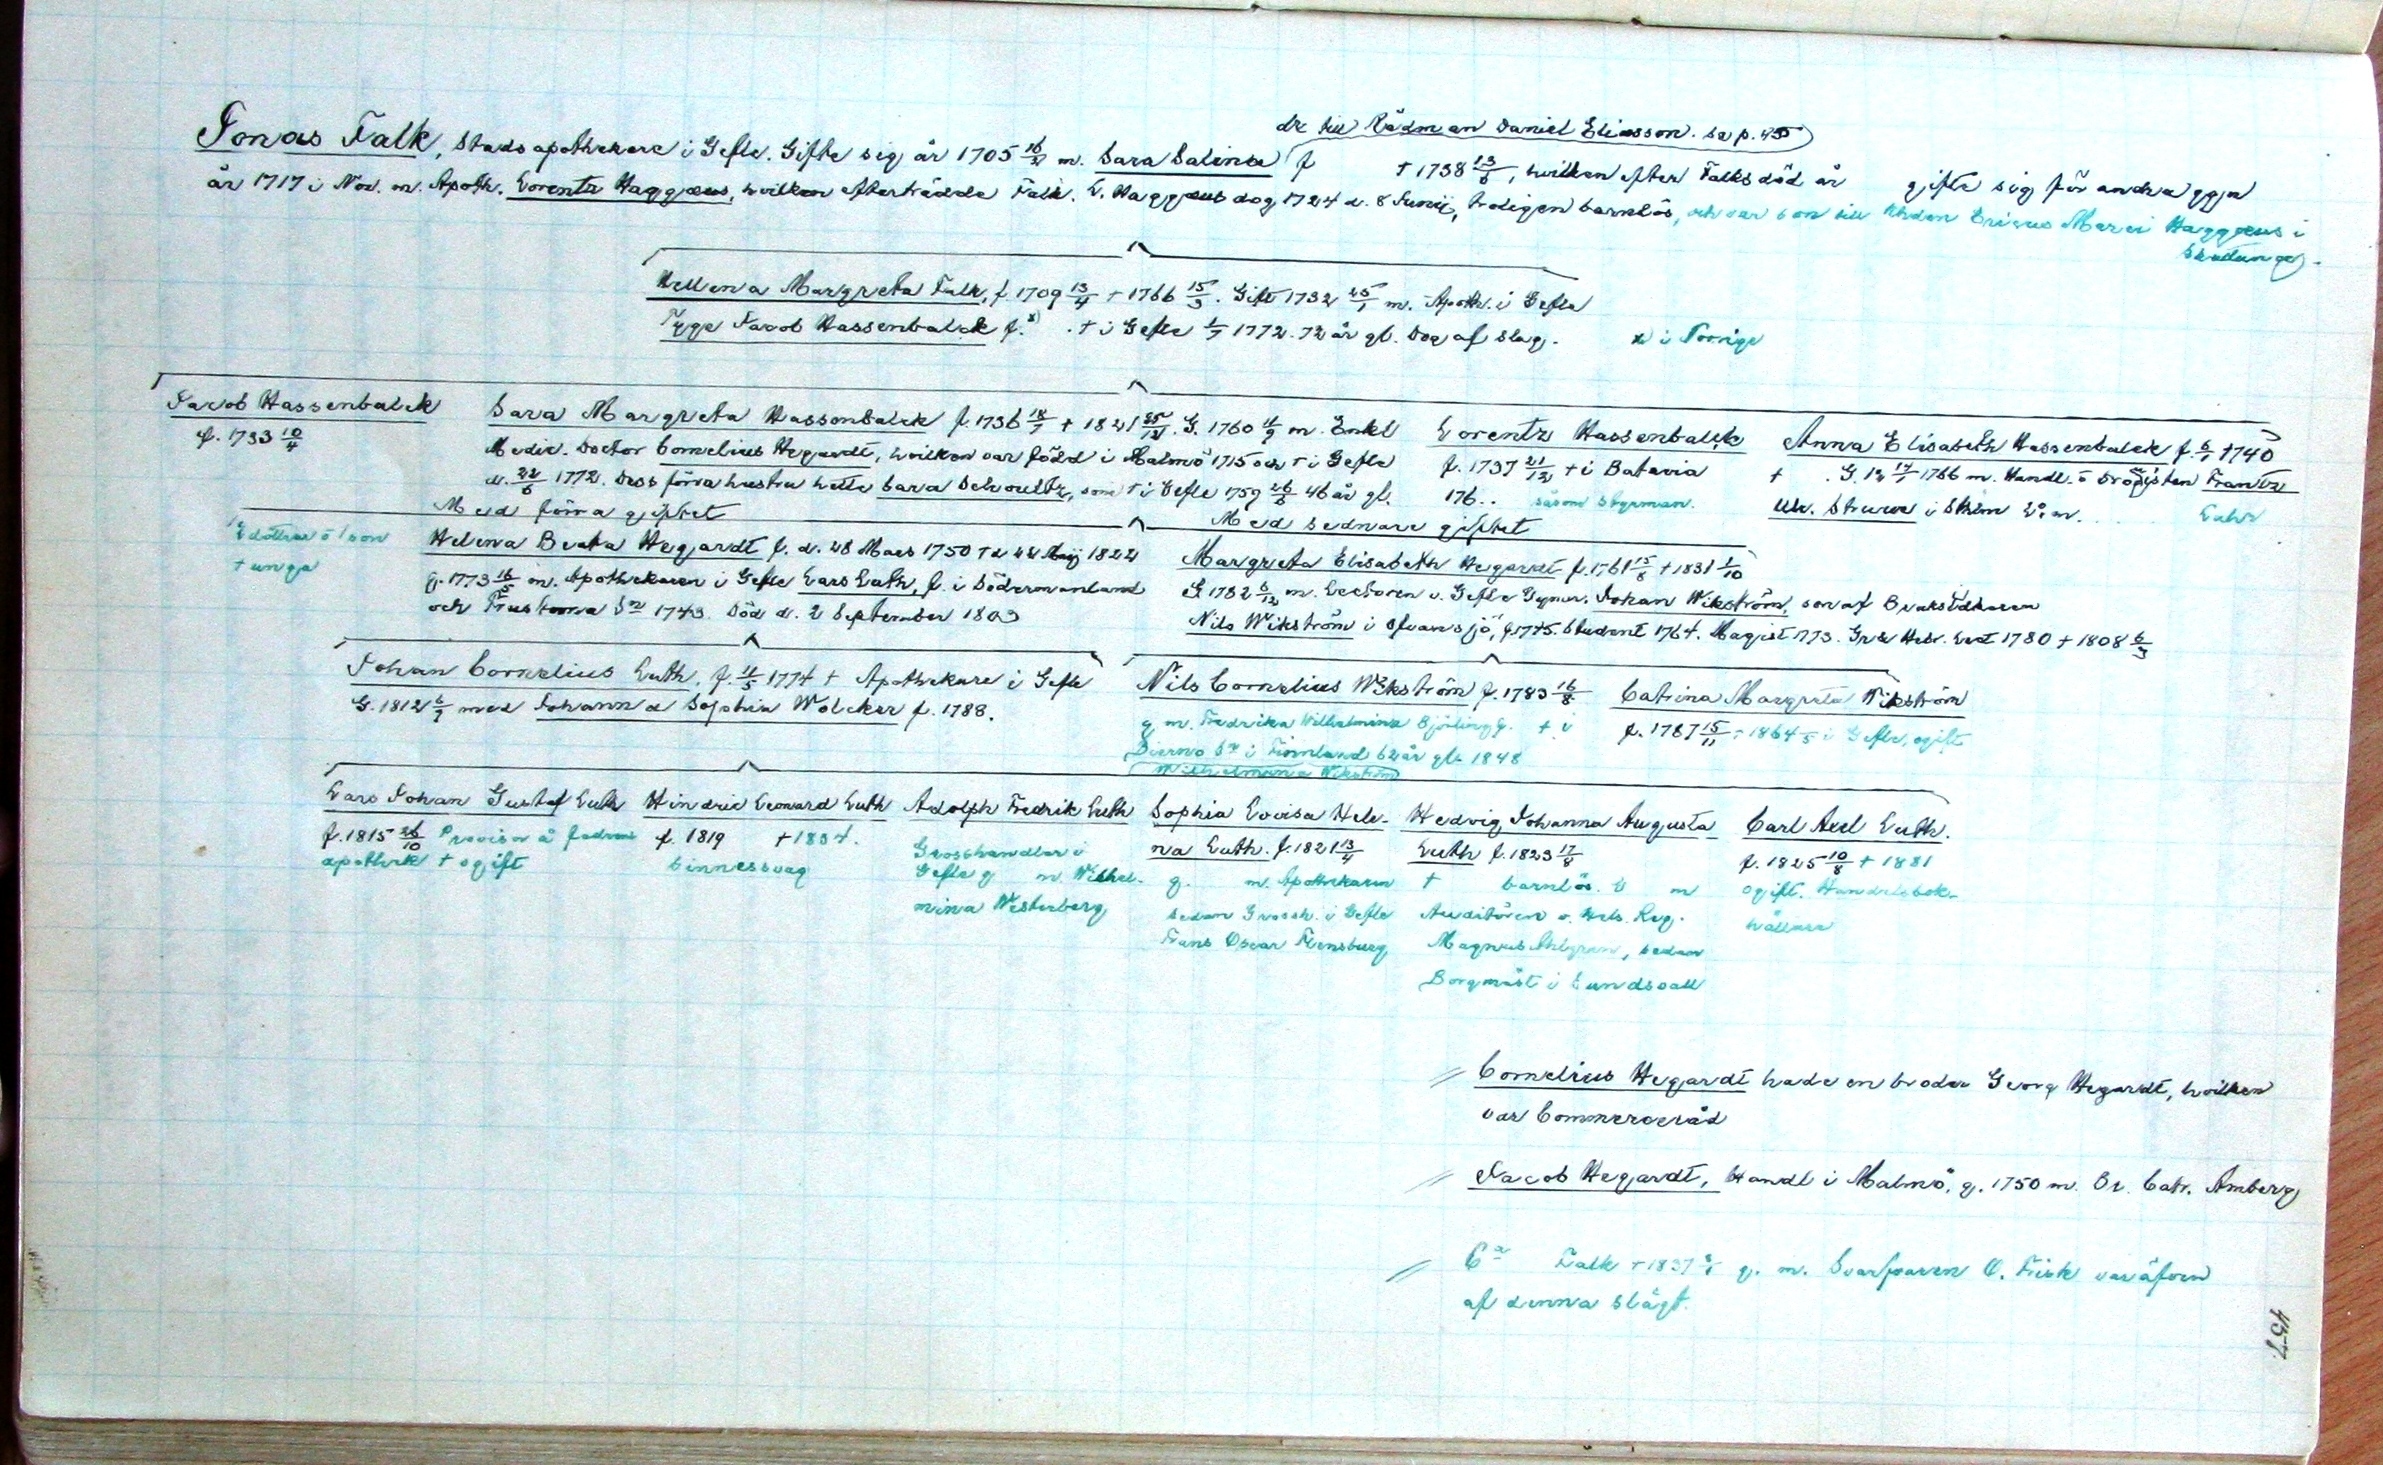 dr till Rådman Daniel Eliasson. se p. 45
Jonas Falk, Stadsapothekare i Gefle. Gifte sig år 1705 16/2 m. Sara Salina f † 1738 13/6, hvilken efter Falks död år gifte sig för andra ggn
år 1717 i Nov. m. Apoth. Lorentz Haggæus, hvilken efterträdde Falk. L. Haggæus dog 1724 d. 8 Junij, troligen barnlös, och var son till Khden Ericus Haggæus i
Skutunge.
Hellena Margreta Falk, f 1709 13/4 † 1766 15/3. Gift 1732 25/1 m. Apoth. i Gefle
Tyge Jacob Hassenbalck f. x) † i Gefle 1772. 72 år gl. Dog af slag. x) i Norrige
Jacob Hassenbalck
f. 1733 10/4
Sara Margreta Hassenbalck f. 1736 18/7 † 1821 25/12. G. 1760 11/9 m. Enkl
Medic. Doctor Cornelius Hegardt, hvilken var född i Malmö 1715 och † i Gefle
d. 22/6 1772. Dess förra hustru hette Sara Schoultz, som † i Gefle 1759 26/6 46 år gl.
Lorentz Hassenbalck
f. 1737 21/12 † i Batavia
176.. såsom Styrman.
Anna Elisabeth Hassenbalck f. 6/1 1740
† G. 1766 m. Handl. o Drogisten Frantz
Ulr. Struwe i Sthlm
Med förra giftet
Med sednare giftet
2 döttrar o 1 son
† unga
Helena Beata Hegardt f. d. 28 Mars 1750 † d. 22 Maj 1822
g. 1773 16/5 m. Apothekaren i Gefle Lars Luth, f. i Södermanland
och Frustuna Sn 1743. Död d. 2 September 1803
Margreta Elisabeth Hegardt f. 1761 15/8 † 1831 1/10
G 1782 6/12 m. Lectoren v. Gefle Gymn. Johan Wikström, son af Bruksidkaren
Nils Wikström i Svansjö, f. 1745. Student 1764. Magist 1773. Gr. & Hebr. Lect 1780 † 1808 6/3
Johan Cornelius Luth, f. 11/5 1774 † Apothekare i Gefle
G. 1812 med Johanna Sophia Wölcker f. 1788.
Nils Cornelius Wikström f. 1783 16/8
g m. Fredrika Wilhelmina Björling g. † i
Bierno Sn i Finnland 62 år gl. 1848
Wilhelmina Wikström
Catrina Margreta Wikström
f. 1787 15/11 † 1864 i Gefle, ogift
Lars Johan Gustaf Luth
f. 1815 26/10 Provisor å fadrens
apothek † ogift
Hindric Leonard Luth
f. 1819 † 1834.
sinnessvag
Adolph Fredrik Luth
Grosshandlar i
Gefle g m. Wilhel-
mina Westerberg
Sophia Lovisa Hele-
na Luth. f. 1821 13/4
g. m. Apothekaren
sedan Grossh. i Gefle
Frans Oscar Flensburg
Hedvig Johanna Augusta
Luth f. 1823 17/8
† barnlös. G m
Auditören v. Hels. Reg.
Magnus Ahlgren, sedan
Borgmäst i Sundsvall
Carl Axel Luth.
f. 1825 10/8 † 1881
ogift. Handelsbok-
hållare
// Cornelius Hegardt hade en broder Georg Hegardt, hvilken
var Commerceråd
// Jacob Hegardt, Handl i Malmö, g. 1750 m. Catr. Amberg
// Ca Falk † 1837 g. m. Svarfvaren O. Frisk var äfven
af denna slägt.
457.